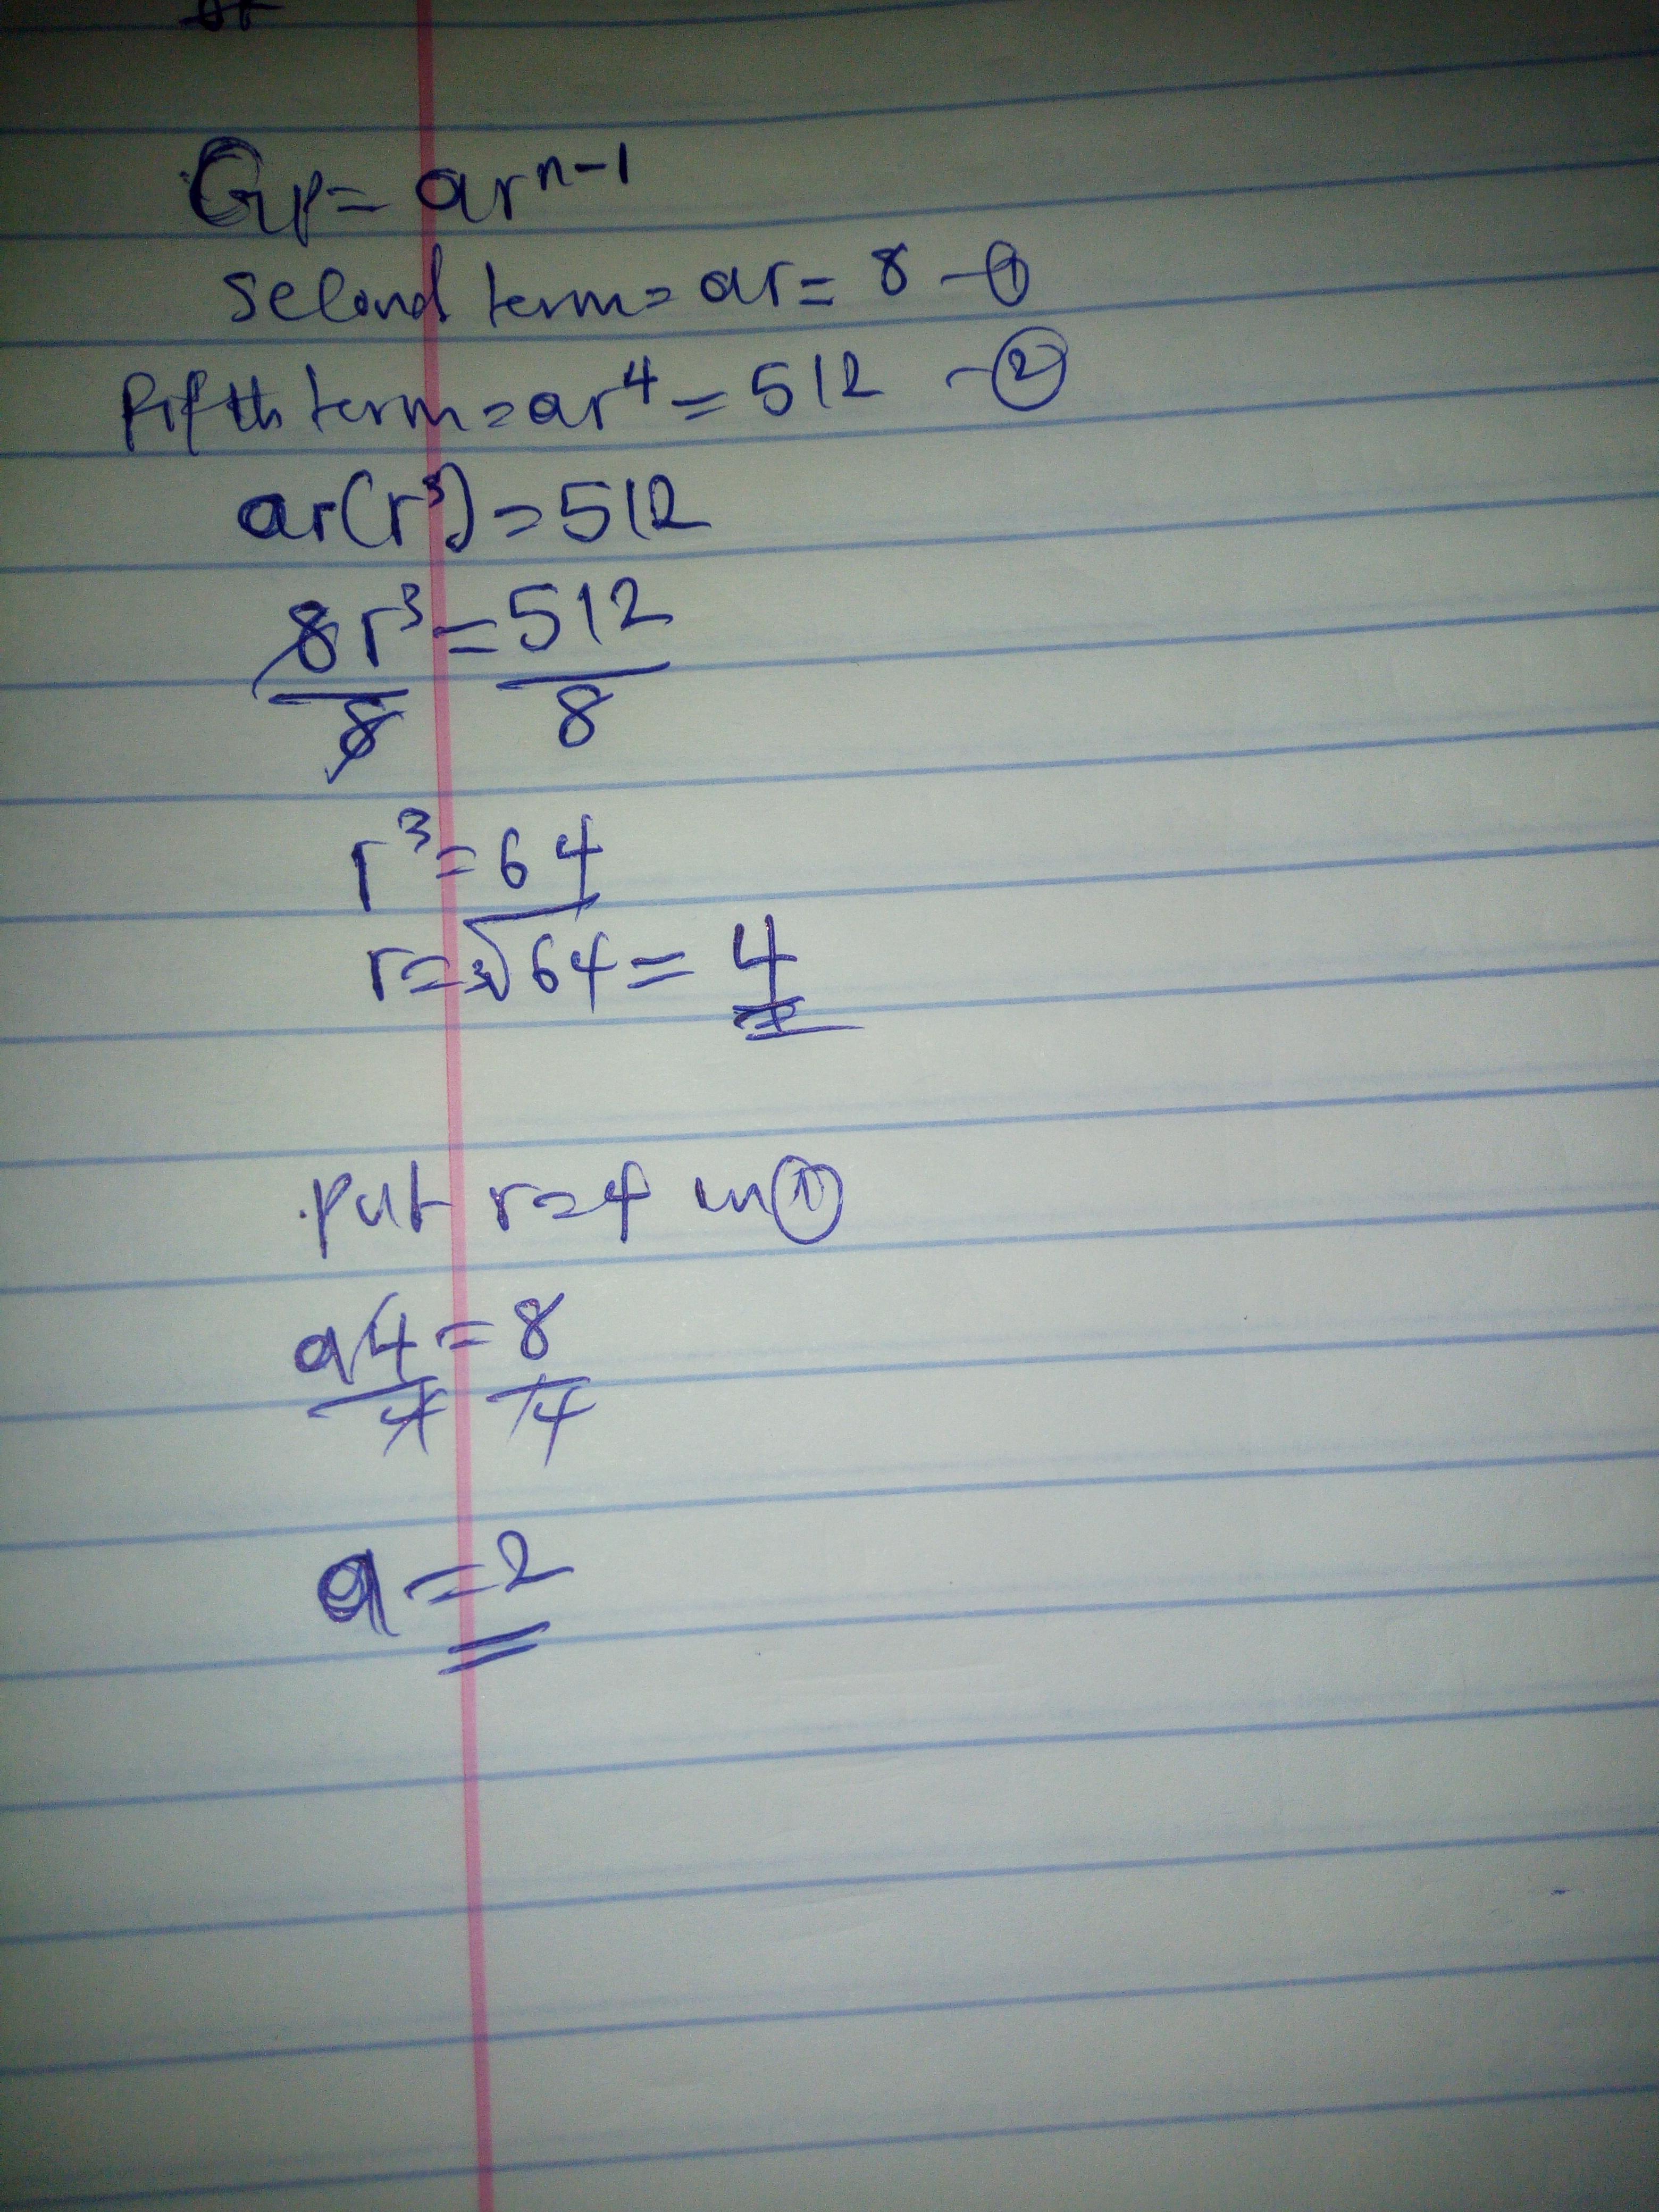 GP = ar^n-1
Second term = ar = 8 - ①
Fifth term = ar⁴ = 512 - ②
ar(r³) = 512
8r³ = 512
8 8
r³ = 64
r = ³√64 = 4
Put r = 4 in ①
a4 = 8
4 4
a = 2